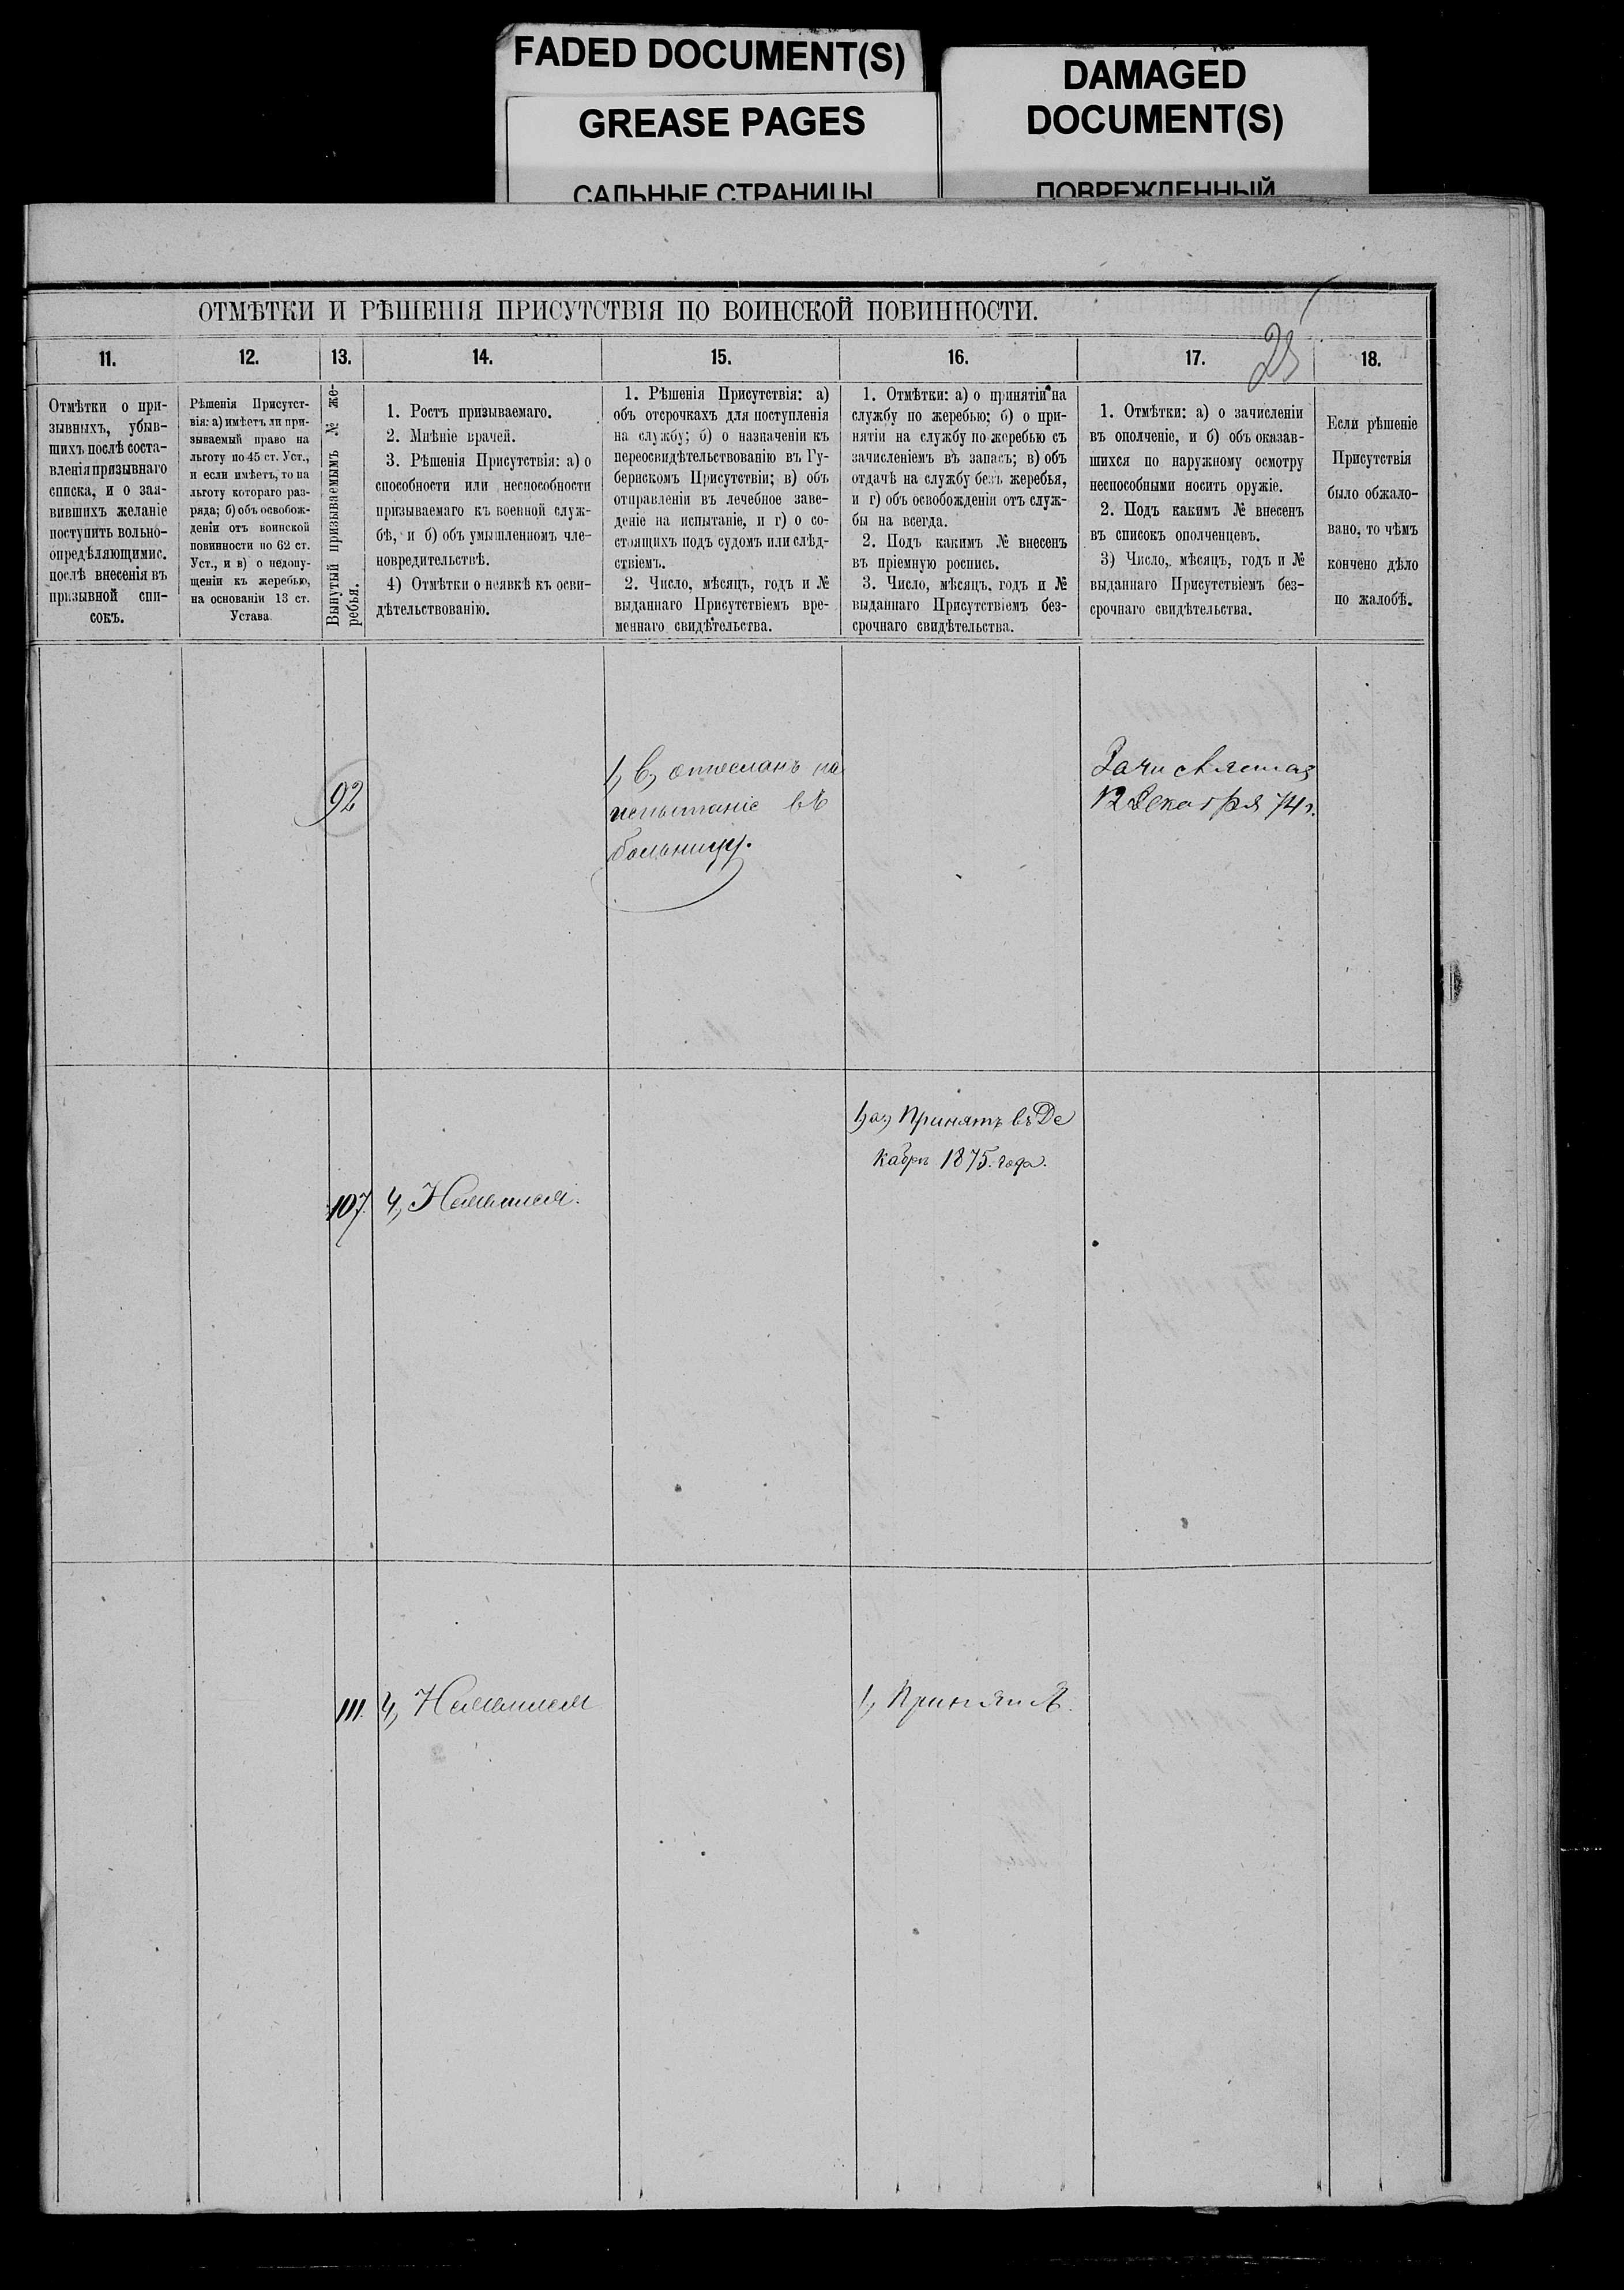 FADED DOCUMENT(S)
GREASE PAGES
САЛЬНЫЕ СТРАНИЦЫ
DAMAGED
DOCUMENT(S)
ПОВРЕЖДЕННЫЙ
ОТМѢТКИ И РѢШЕНІЯ ПРИСУТСТВІЯ ПО ВОИНСКОЙ ПОВИННОСТИ.
11.
12.
13.
14.
15.
16.
17.
18.
Отмѣтки о при-
зывныхъ, убыв-
шихъ послѣ соста-
вленія призывнаго
списка, и о зая-
вившихъ желаніе
поступить вольно-
опредѣляющимис.
послѣ внесенія въ
призывной спи-
сокъ.
Рѣшенія Присутст-
вія: а) имѣетъ ли при-
зываемый право на
льготу по 45 ст. Уст.,
и если имѣетъ, то на
льготу котораго раз-
ряда; б) объ освобож-
деніи отъ воинской
повинности по 62 ст.
Уст., и в) о недопу-
щеніи къ жеребью,
на основаніи 13 ст.
Устава
Вынутый призываемымъ № же-
ребья.
1. Ростъ призываемаго.
2. Мнѣніе врачей.
3. Рѣшенія Присутствія: а) о
способности или неспособности
призываемаго къ военной служ-
бѣ, и б) объ умышленномъ чле-
новредительствѣ.
4) Отмѣтки о неявкѣ къ осви-
дѣтельствованію.
1. Рѣшенія Присутствія: а)
объ отсрочкахъ для поступленія
на службу; б) о назначеніи къ
переосвидѣтельствованію въ Гу-
бернскомъ Присутствіи; в) объ
отправленіи въ лечебное заве-
деніе на испытаніе, и г) о со-
стоящихъ подъ судомъ или слѣд-
ствіемъ.
2. Число, мѣсяцъ, годъ и №
выданнаго Присутствіемъ вре-
меннаго свидѣтельства.
1. Отмѣтки: а) о принятіи на
службу по жеребью; б) о при-
нятіи на службу по жеребью съ
зачисленіемъ въ запасъ; в) объ
отдачѣ на службу безъ жеребья,
и г) объ освобожденіи отъ служ-
бы на всегда.
2. Подъ какимъ № внесенъ
въ пріемную роспись.
3. Число, мѣсяцъ, годъ и №
выданнаго Присутствіемъ без-
срочнаго свидѣтельства.
1. Отмѣтки: а) о зачисленіи
въ ополченіе, и б) объ оказав-
шихся по наружному осмотру
неспособными носить оружіе.
2. Подъ какимъ № внесенъ
въ списокъ ополченцевъ.
3) Число, мѣсяцъ, годъ и №
выданнаго Присутствіемъ без-
срочнаго свидѣтельства.
Если рѣшеніе
Присутствія
было обжало-
вано, то чѣмъ
кончено дѣло
по жалобѣ.
92
1, в, отосланъ на
испытаніе въ
больницу.
12 Декабря 74 г.
107. 4,
1, а, Принятъ въ Де
кабрѣ 1875. года.
111. 4,
1, Принятъ.